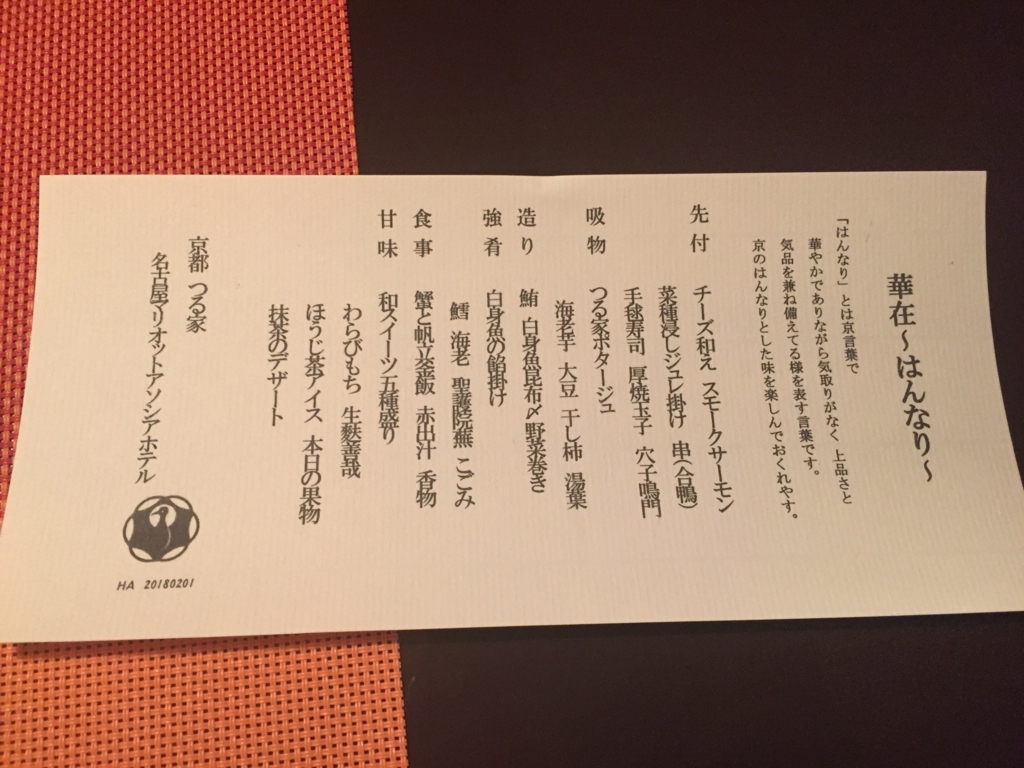 華在～はんなり～
「はんなり」とは京言葉で
華やかでありながら気取りがなく、上品さと
気品を兼ね備えてる様を表す言葉です。
京のはんなりとした味を楽しんでおくれやす。
先付 チーズ和え スモークサーモン
菜種浸しジュレ掛け 串(合鴨)
手毬寿司 厚焼玉子 穴子鳴門
吸物 つる家ポタージュ
海老芋 大豆 干し柿 湯葉
造り 鮪 白身魚昆布〆野菜巻き
強肴 白身魚の餡掛け
鱈 海老 聖護院蕪 こごみ
食事 蟹と帆立釜飯 赤出汁 香物
甘味 和スイーツ五種盛り
わらびもち 生麩善哉
ほうじ茶アイス 本日の果物
抹茶のデザート
京都 つる家
名古屋マリオットアソシアホテル
HA 20180201